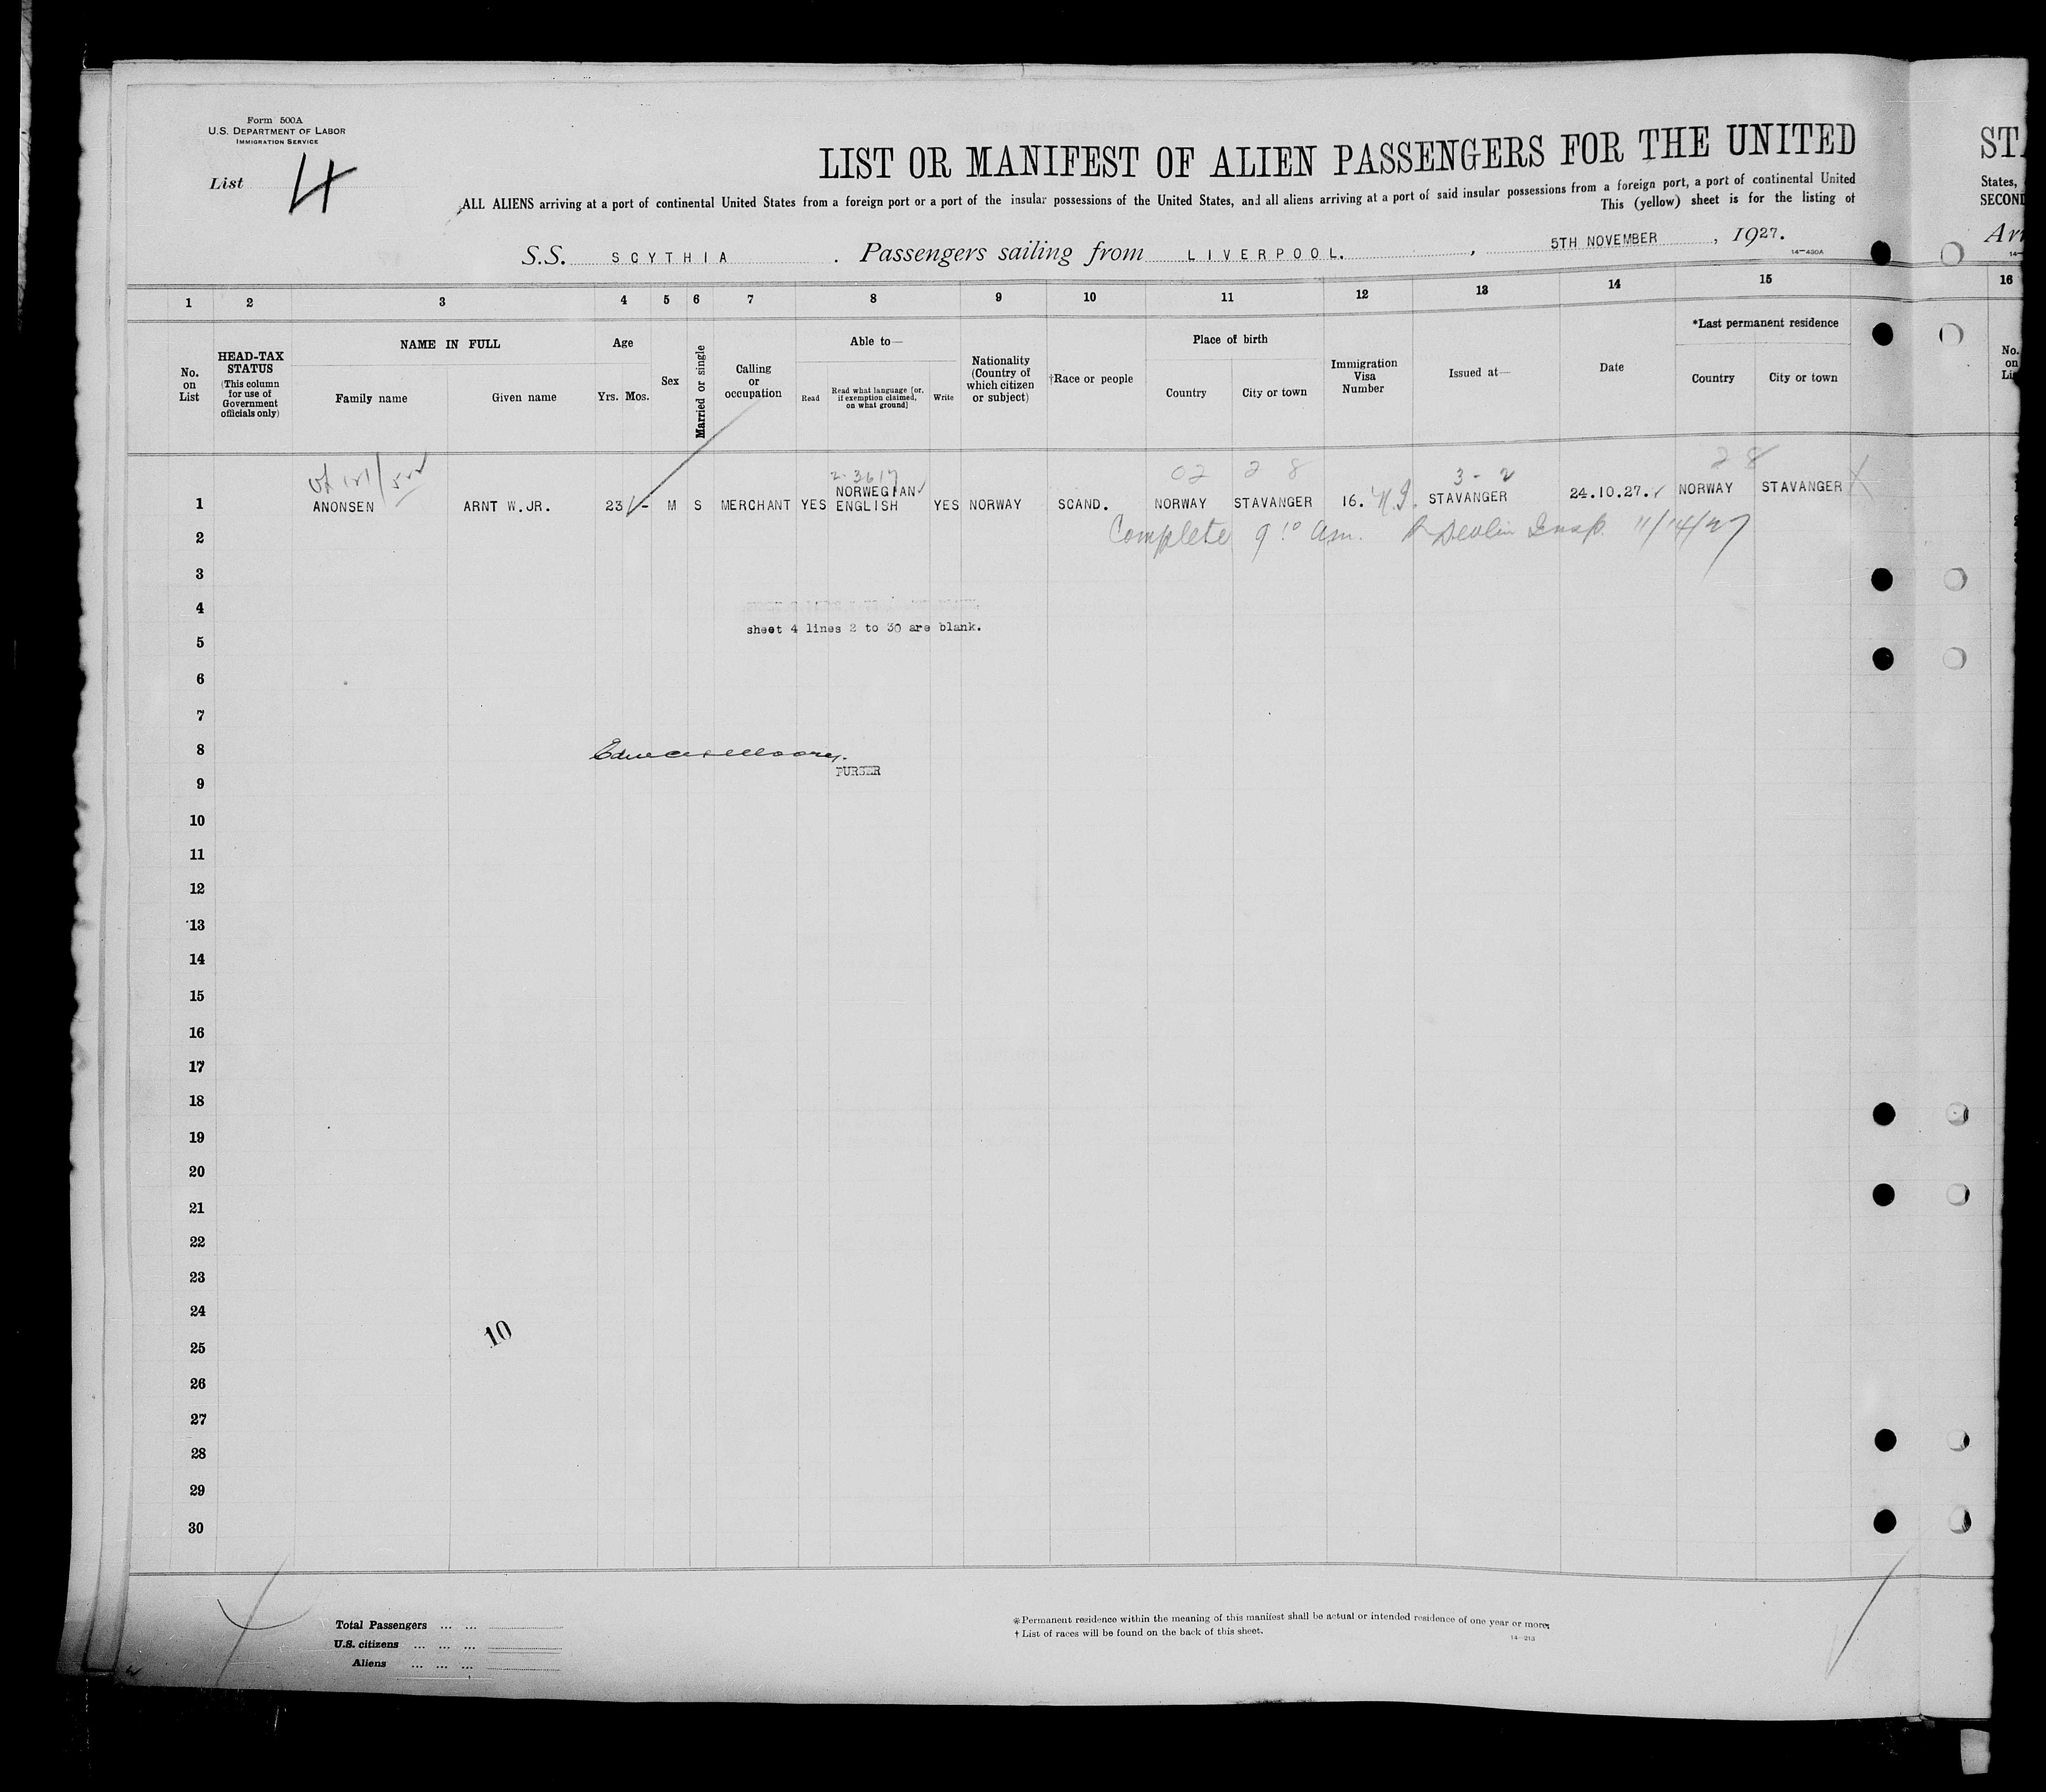 Form 500A
U.S. DEPARTMENT OF LABOR
IMMIGRATION SERVICE
List 4
LIST OR MANIFEST OF ALIEN PASSENGERS FOR THE UNITED
ALL ALIENS arriving at a port of continental United States from a foreign port or a port of the insular possessions of the United States, and all aliens arriving at a port of said insular possessions from a foreign port, a port of continental United
This (yellow) sheet is for the listing of
S.S. SCYTHIA . Passengers sailing from LIVERPOOL. , 5TH NOVEMBER , 1927.
14—430A
1 2 3 4 5 6 7 8 9 10 11 12 13 14 15
No. on List
HEAD-TAX STATUS (This column for use of Government officials only)
NAME IN FULL
Family name
Given name
Age
Yrs. Mos.
Sex
Married or single
Calling or occupation
Able to—
Read
Read what language [or, if exemption claimed, on what ground]
Write
Nationality (Country of which citizen or subject)
†Race or people
Place of birth
Country
City or town
Immigration Visa Number
Issued at—
Date
*Last permanent residence
Country
City or town
02 2 8 3-2 28
1 ANONSEN ARNT W.JR. 23 - M S MERCHANT YES NORWEGIAN ENGLISH YES NORWAY SCAND. NORWAY STAVANGER 16. STAVANGER 24.10.27. NORWAY STAVANGER
Complete 9 10 Am. Devlin Insp. 11/14/27
2
3
4
sheet 4 lines 2 to 30 are blank.
5
6
7
8
PURSER
9
10
11
12
13
14
15
16
17
18
19
20
21
22
23
24
10
25
26
27
28
29
30
Total Passengers ... ...
U.S. citizens ... ... ...
Aliens ... ... ...
*Permanent residence within the meaning of this manifest shall be actual or intended residence of one year or more.
† List of races will be found on the back of this sheet.
14—213
STA
States,
SECOND
Arr
16
No. on Lis